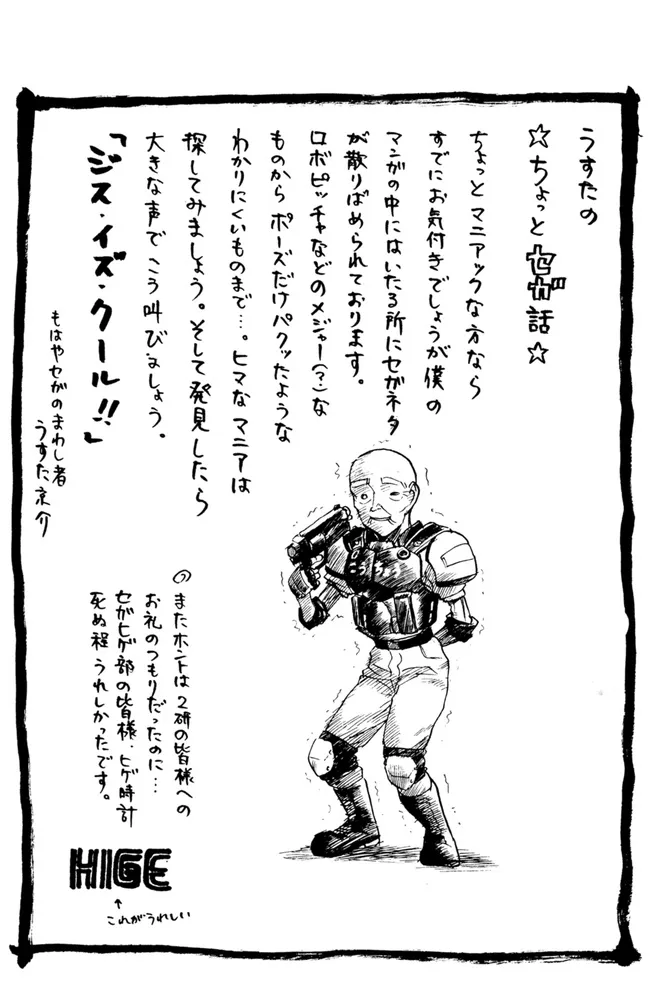 うすたの
☆ちょっとセガ話☆
ちょっとマニアックな方なら
すでにお気付きでしょうが僕の
マンガの中にはいたる所にセガネタ
が散りばめられております。
ロボピッチャなどのメジャー(?)な
ものからポーズだけパクッたような
わかりにくいものまで…。ヒマなマニアは
探してみましょう。そして発見したら
大きな声でこう叫びましょう。
「ジス・イズ・クール!!」
もはやセガのまわし者
うすた京介
またホントは2研の皆様への
お礼のつもりだったのに…
セガヒゲ部の皆様、ヒゲ時計
死ぬ程うれしかったです。
HIGE
↑
これがうれしい